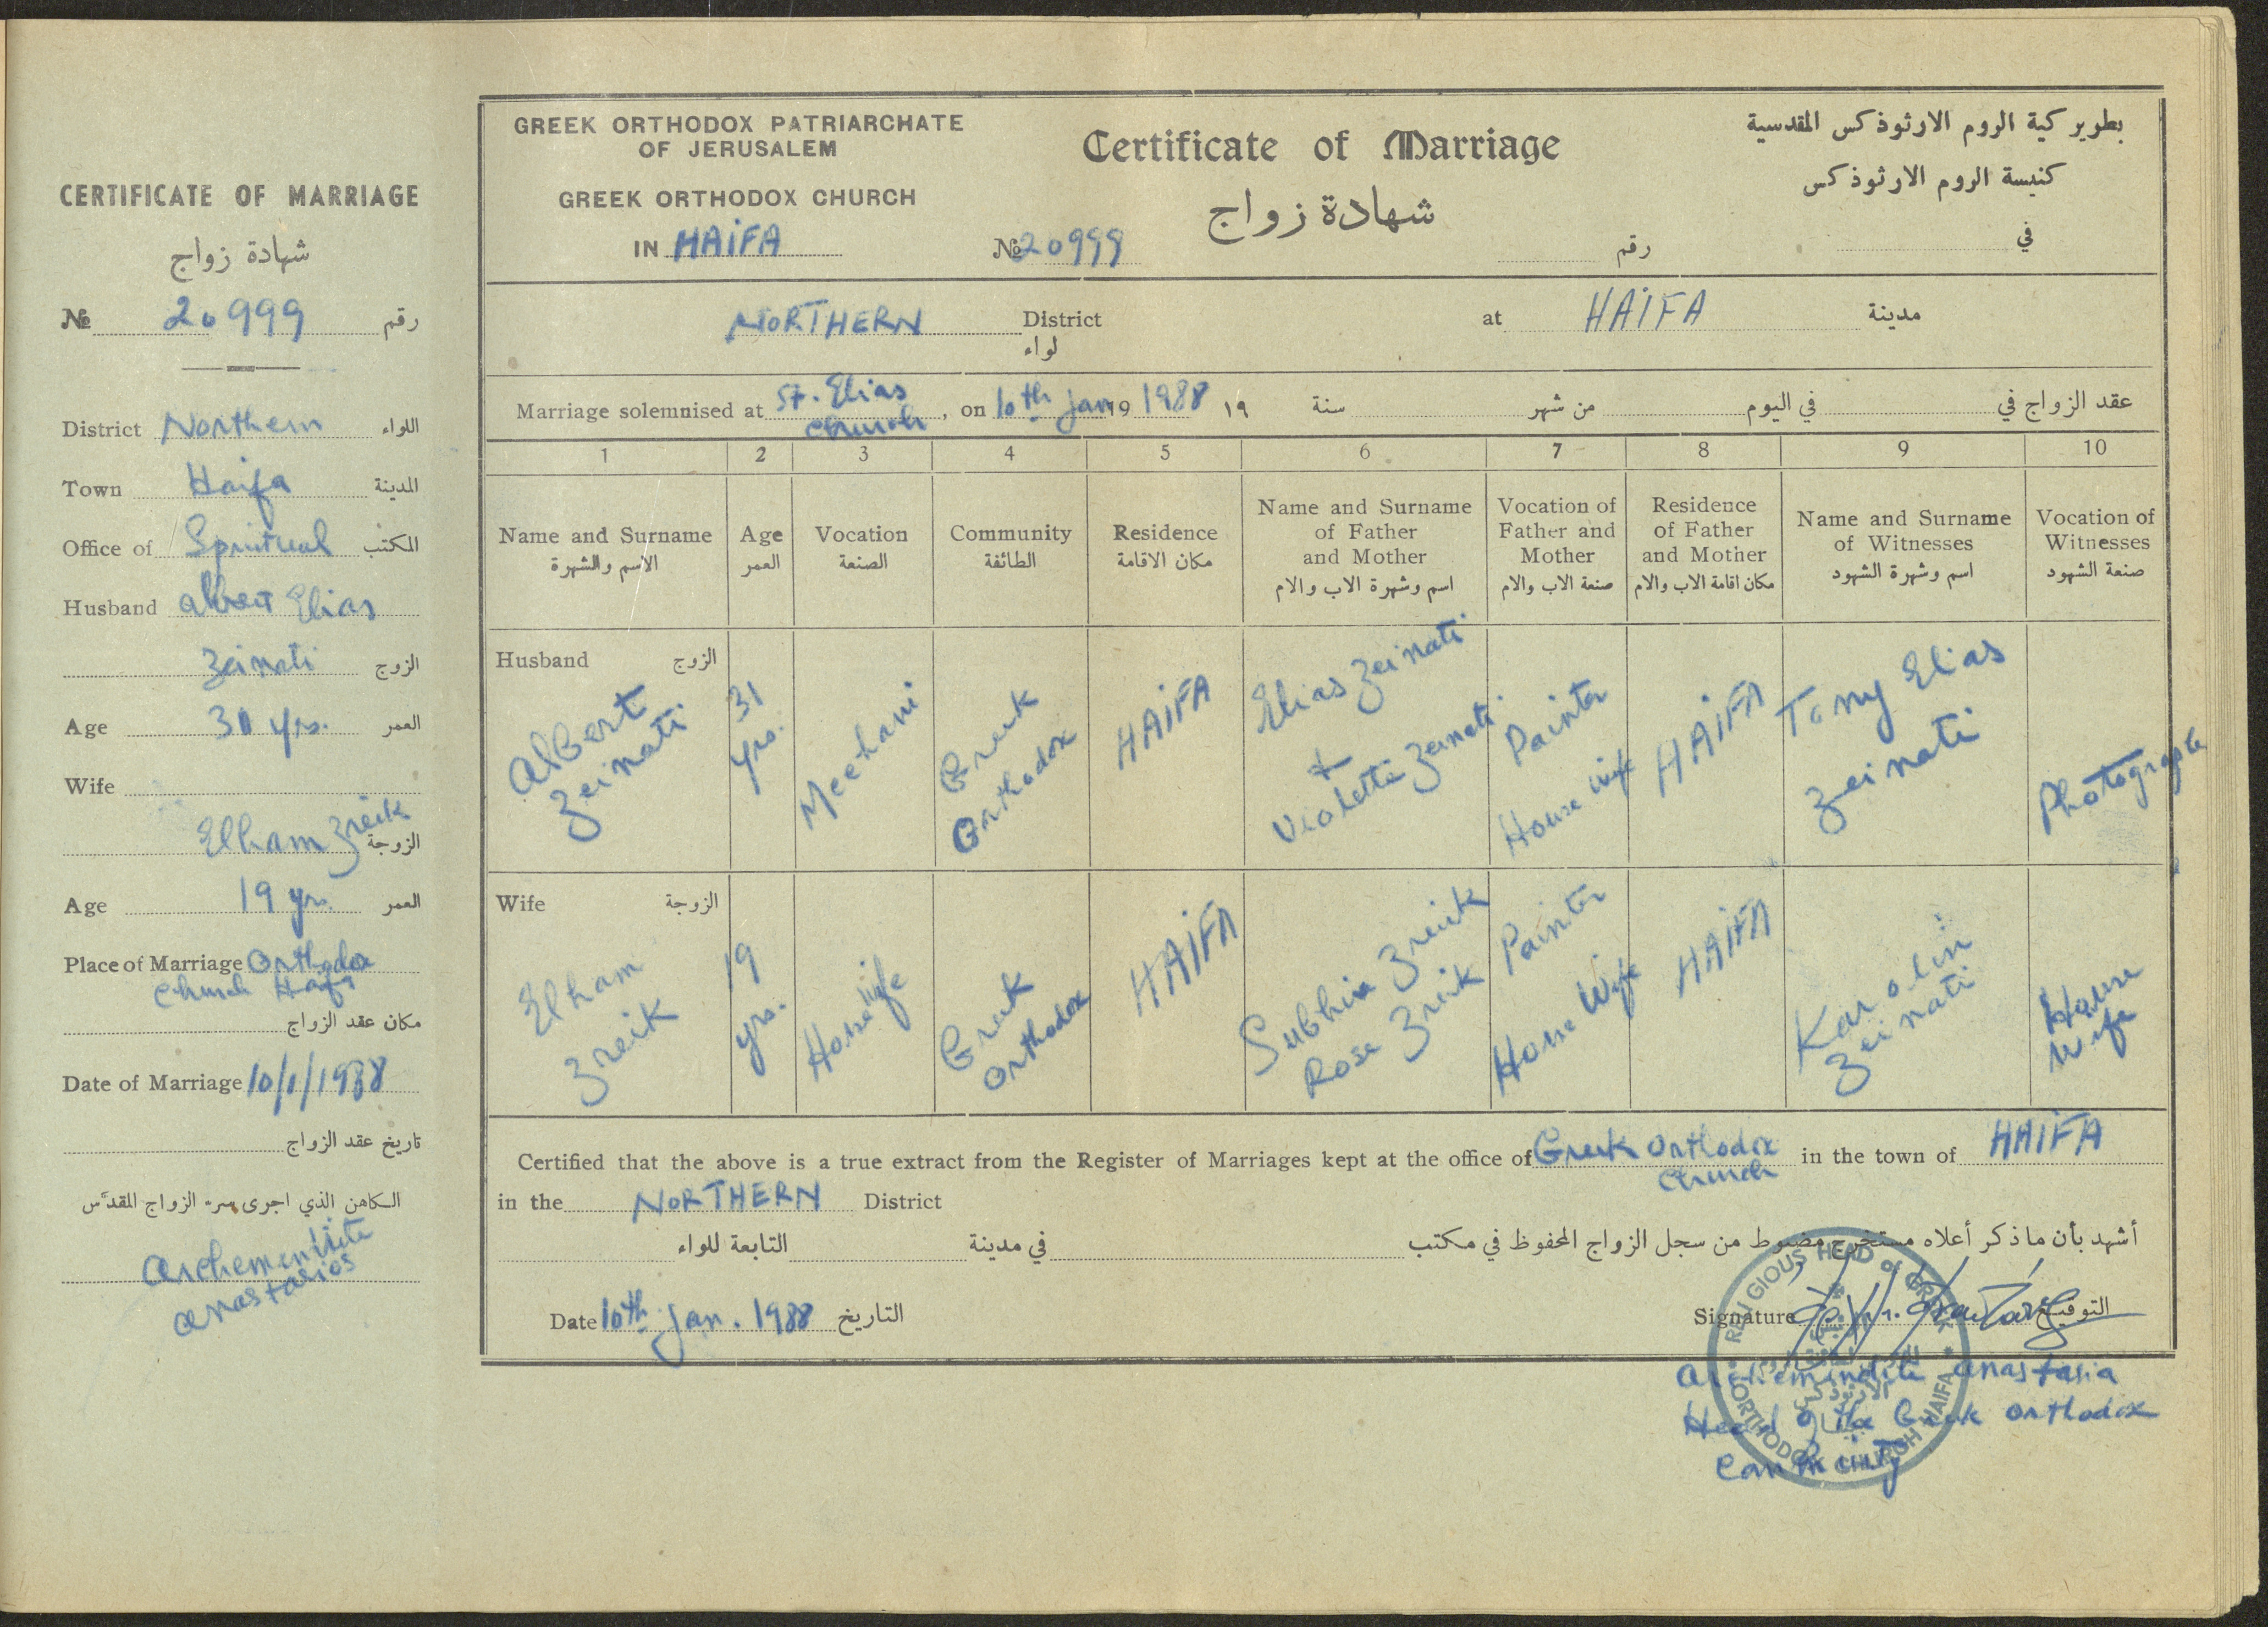 CERTIFICATE OF MARRIAGE
شهادة زواج
№ 20999 رقم
District Northern اللواء
Town Haifa المدينة
Office of Spiritual المكتب
Husband Albert Elias
Zeinati الزوج
Age 30 yrs. العمر
Wife
Elham Zreik الزوجة
Age 19 yrs. العمر
Place of Marriage Orthodox
Church Haifa
مكان عقد الزواج
Date of Marriage 10/1/1988
تاريخ عقد الزواج
الكاهن الذي اجرى سر الزواج المقدس
Anastasios
GREEK ORTHODOX PATRIARCHATE
OF JERUSALEM
GREEK ORTHODOX CHURCH
IN HAIFA
Certificate of Marriage
شهادة زواج
№ 20999
بطوير كية الروم الارثوذكس المقدسية
كنيسة الروم الارثوذكس
في
رقم
NORTHERN District
لواء
at HAIFA مدينة
Marriage solemnised at St. Elias Church, on 10th Jan 19 1988 ١٩ سنة من شهر في اليوم عقد الزواج في
1 2 3 4 5 6 7 8 9 10
Name and Surname
الاسم والشهرة
Age
العمر
Vocation
الصنعة
Community
الطائفة
Residence
مكان الاقامة
Name and Surname
of Father
and Mother
اسم وشهرة الاب والام
Vocation of
Father and
Mother
صنعة الاب والام
Residence
of Father
and Mother
مكان اقامة الاب والام
Name and Surname
of Witnesses
اسم وشهرة الشهود
Vocation of
Witnesses
صنعة الشهود
Husband الزوج
Albert
Zeinati
31
yrs.
Mechani
Greek
Orthodox
HAIFA
Elias Zeinati
+
Violette Zeinati
Painter
House wife
HAIFA
Tony Elias
Zeinati
Photographe
Wife الزوجة
Elham
Zreik
19
yrs.
House wife
Greek
Orthodox
HAIFA
Zreik
Rose Zreik
Painter
House Wife
HAIFA
Karolin
Zeinati
House
Wife
Certified that the above is a true extract from the Register of Marriages kept at the office of Greek Orthodox Church in the town of HAIFA
in the NORTHERN District
أشهد بأن ما ذكر أعلاه مستخرج مضبوط من سجل الزواج المحفوظ في مكتب في مدينة التابعة للواء
Date 10th Jan. 1988 التاريخ
Signature التوقيع
Archemindite Anastasia
Head of the Greek Orthodox
Community
RELIGIOUS HEAD of GREEK
ORTHODOX CHURCH HAIFA